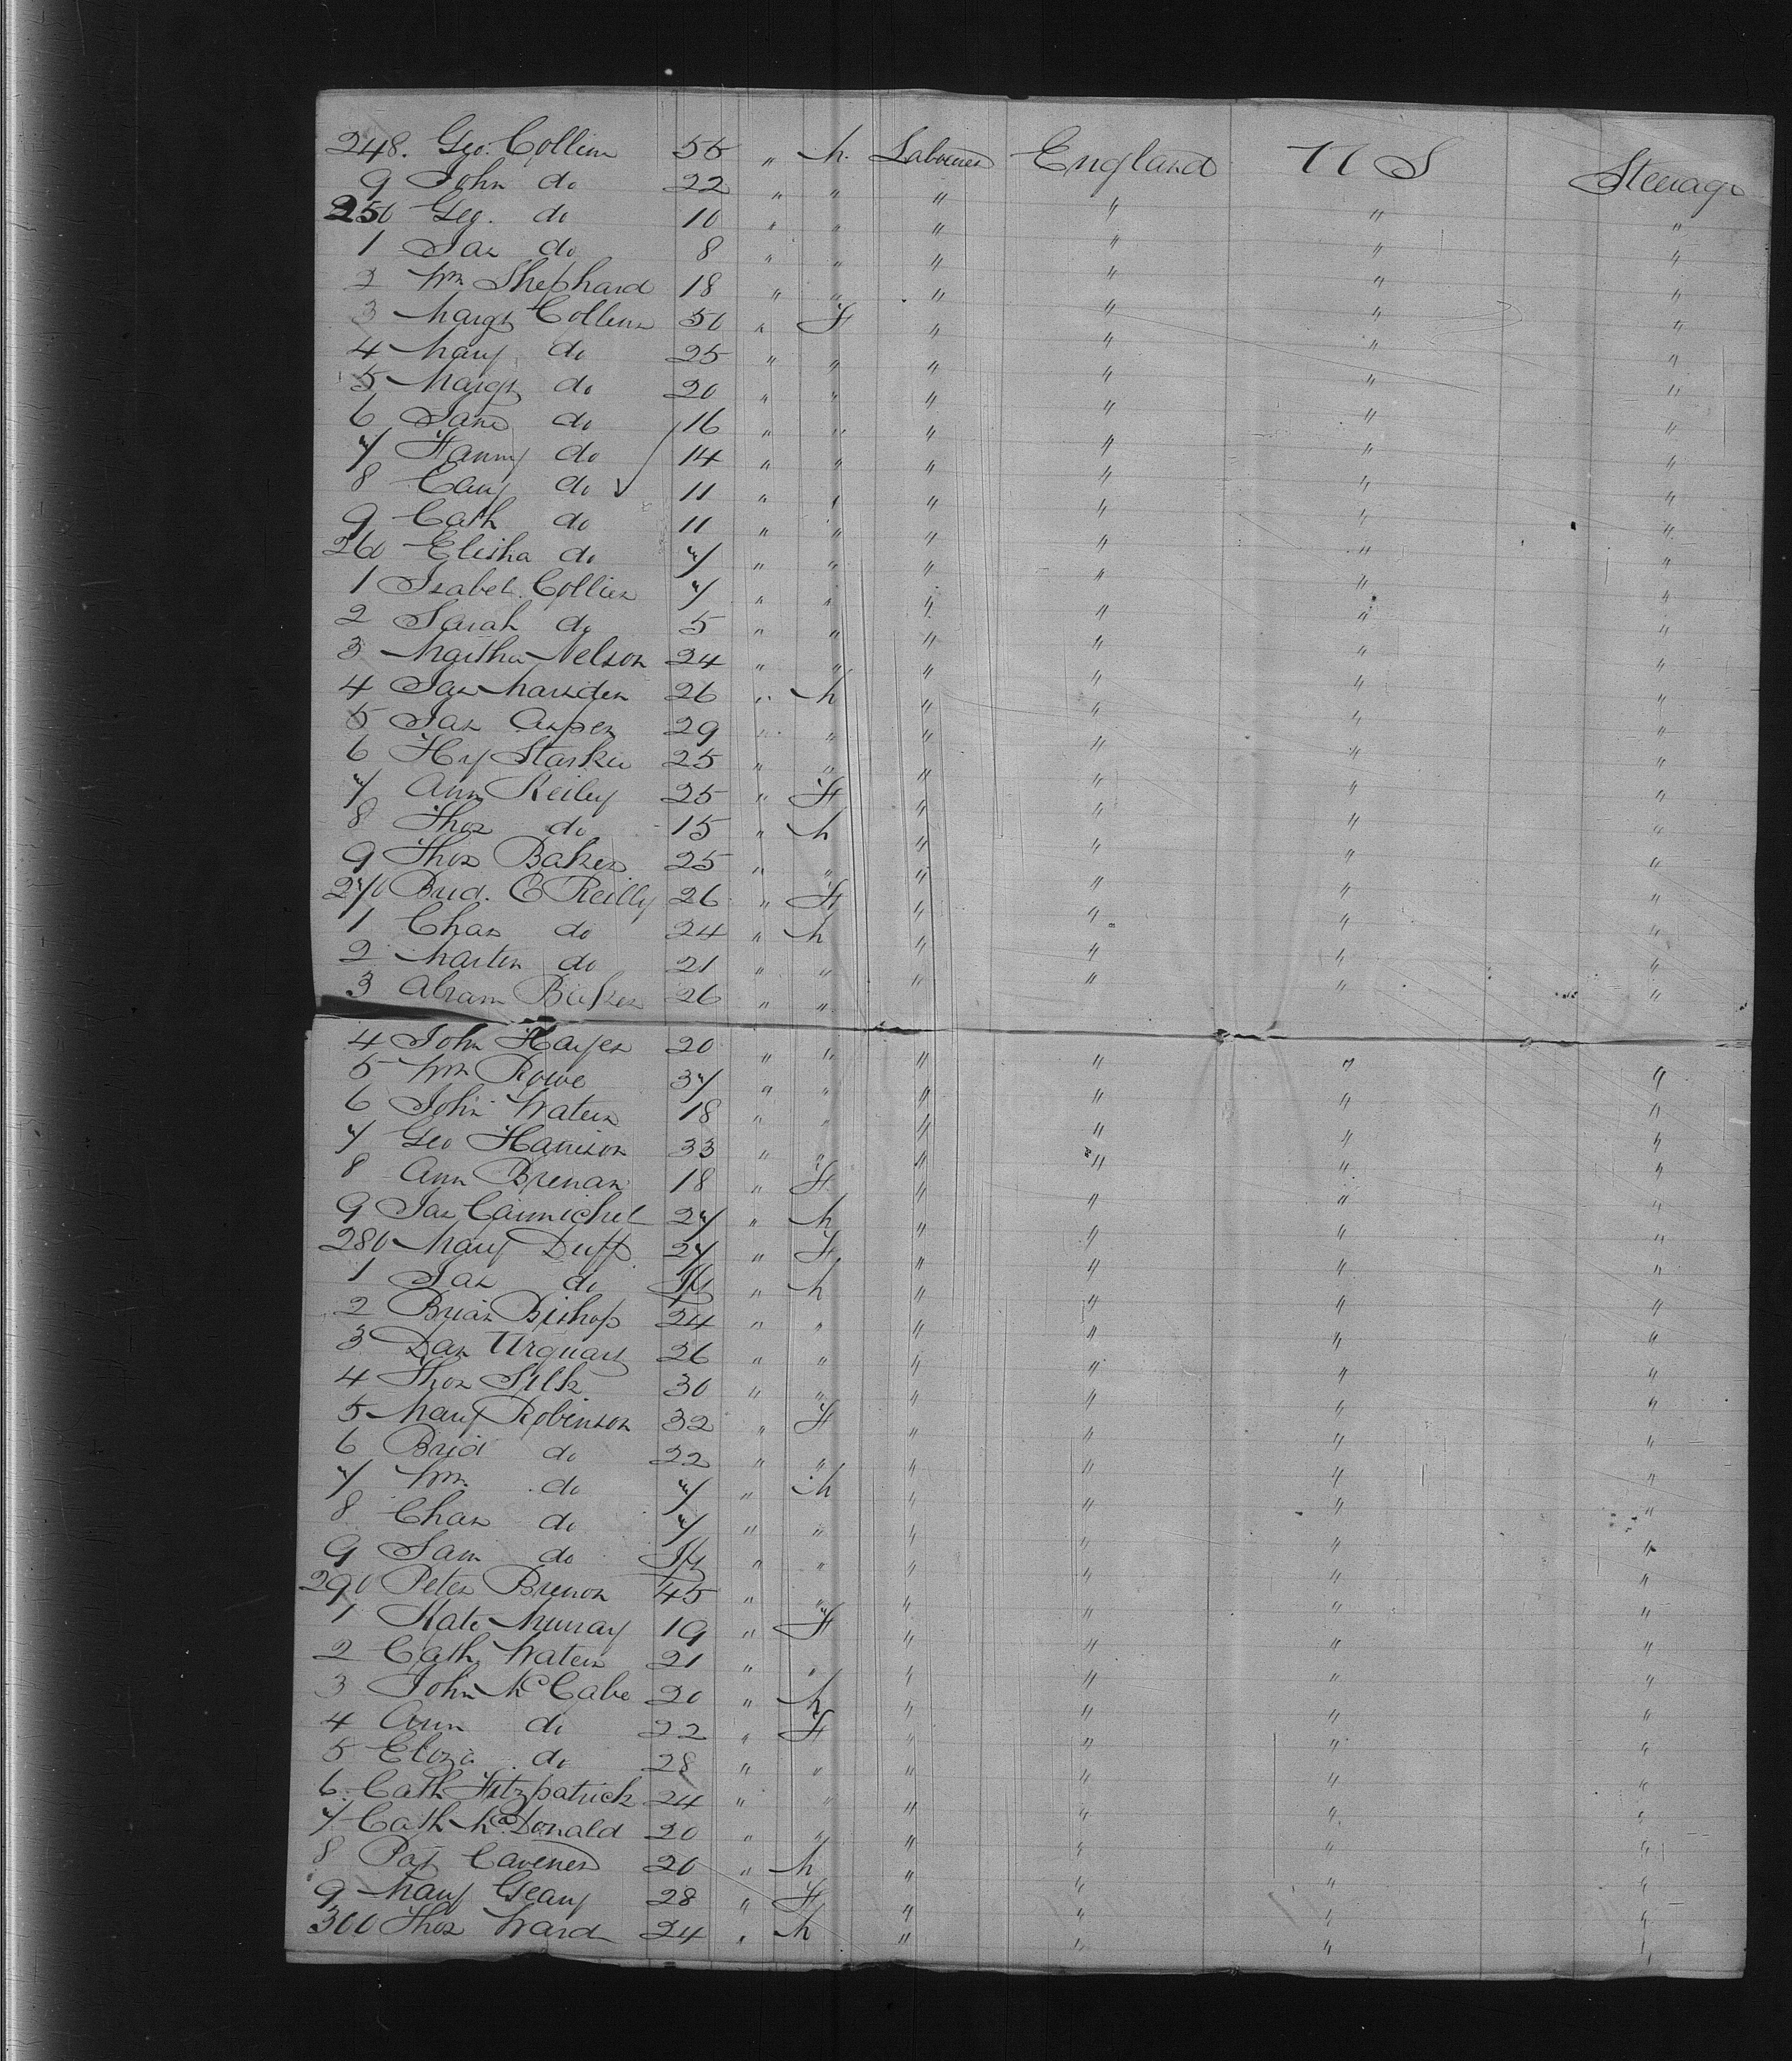 248. Geo. Collins 55 " M. Labourer England U S Steerage
9 John do 22 " " " " " "
250 Geo. do 10 " " " " " "
1 Jas do 8 " " " " " "
2 Wm Shephard 18 " " " " " "
3 Margt Collins 50 " F " " " "
4 Mary do 25 " " " " " "
5 Margt do 20 " " " " " "
6 Jane do 16 " " " " " "
7 Fanny do 14 " " " " " "
8 do 11 " " " " " "
9 Cath do 11 " " " " " "
260 Elisha do 7 " " " " " "
1 Isabel. Collier 7 " " " " " "
2 Sarah do 5 " " " " " "
3 Martha Nelson 24 " " " " " "
4 Jas Marsden 26 " M " " " "
5 Jas Asper 29 " " " " " "
6 Hy Starkie 25 " " " " " "
7 Ann Reiley 25 " F " " " "
8 Thos do 15 " M " " " "
9 Thos Baker 25 " " " " " "
270 Brid. O Reilly 26 " F " " " "
1 Chas do 24 " M " " " "
2 Martin do 21 " " " " " "
3 Abram Baker 26 " " " " " "
4 John Hayes 20 " " " " " "
5 Wm Rowe 37 " " " " " "
6 John Waters 18 " " " " " "
7 Geo Harrison 33 " " " " " "
8 Ann Brenan 18 " F " " " "
9 Jas Carmichel 27 " M " " " "
280 Mary Duff 27 " F " " " "
1 Jas do " M " " " "
2 Brian Bishop 24 " " " " " "
3 Dan Urquart 26 " " " " " "
4 Thos Silk 30 " " " " " "
5 Mary Robinson 32 " F " " " "
6 Brid do 22 " " " " " "
7 Wm. do 7 " M " " " "
8 Chas do 7 " " " " " "
9 Sam do " " " " " "
290 Peter Brenon 45 " " " " " "
1 Kate Murray 19 " F " " " "
2 Cath Waters 21 " " " " " "
3 John McCabe 20 " M " " " "
4 Ann do 22 " F " " " "
5 Eliza do 28 " " " " " "
6. Cath Fitzpatrick 24 " " " " " "
7 Cath McDonald 20 " " " " " "
8 Pat Cavener 20 " M " " " "
9 Mary Geary 28 " F " " " "
300 Thos Ward 24 " M " " " "